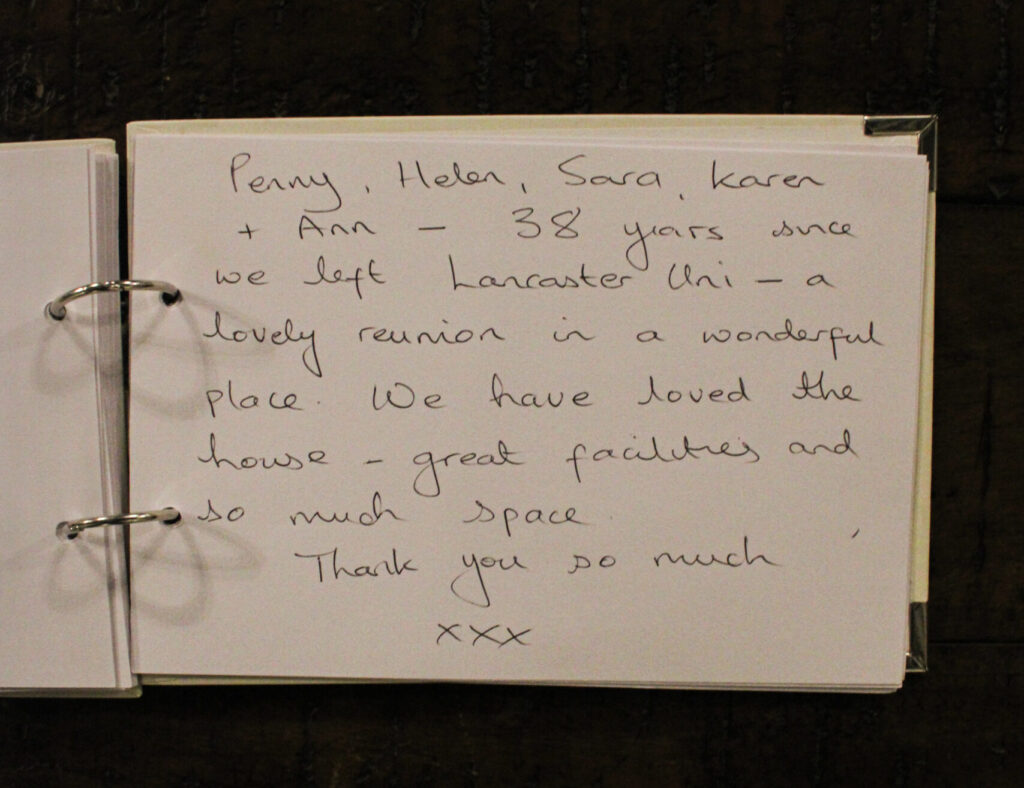 Penny, Helen, Sara, Karen
+ Ann - 38 years since
we left Lancaster Uni - a
lovely reunion in a wonderful
place. We have loved the
house - great facilities and
so much space.
Thank you so much
xxx